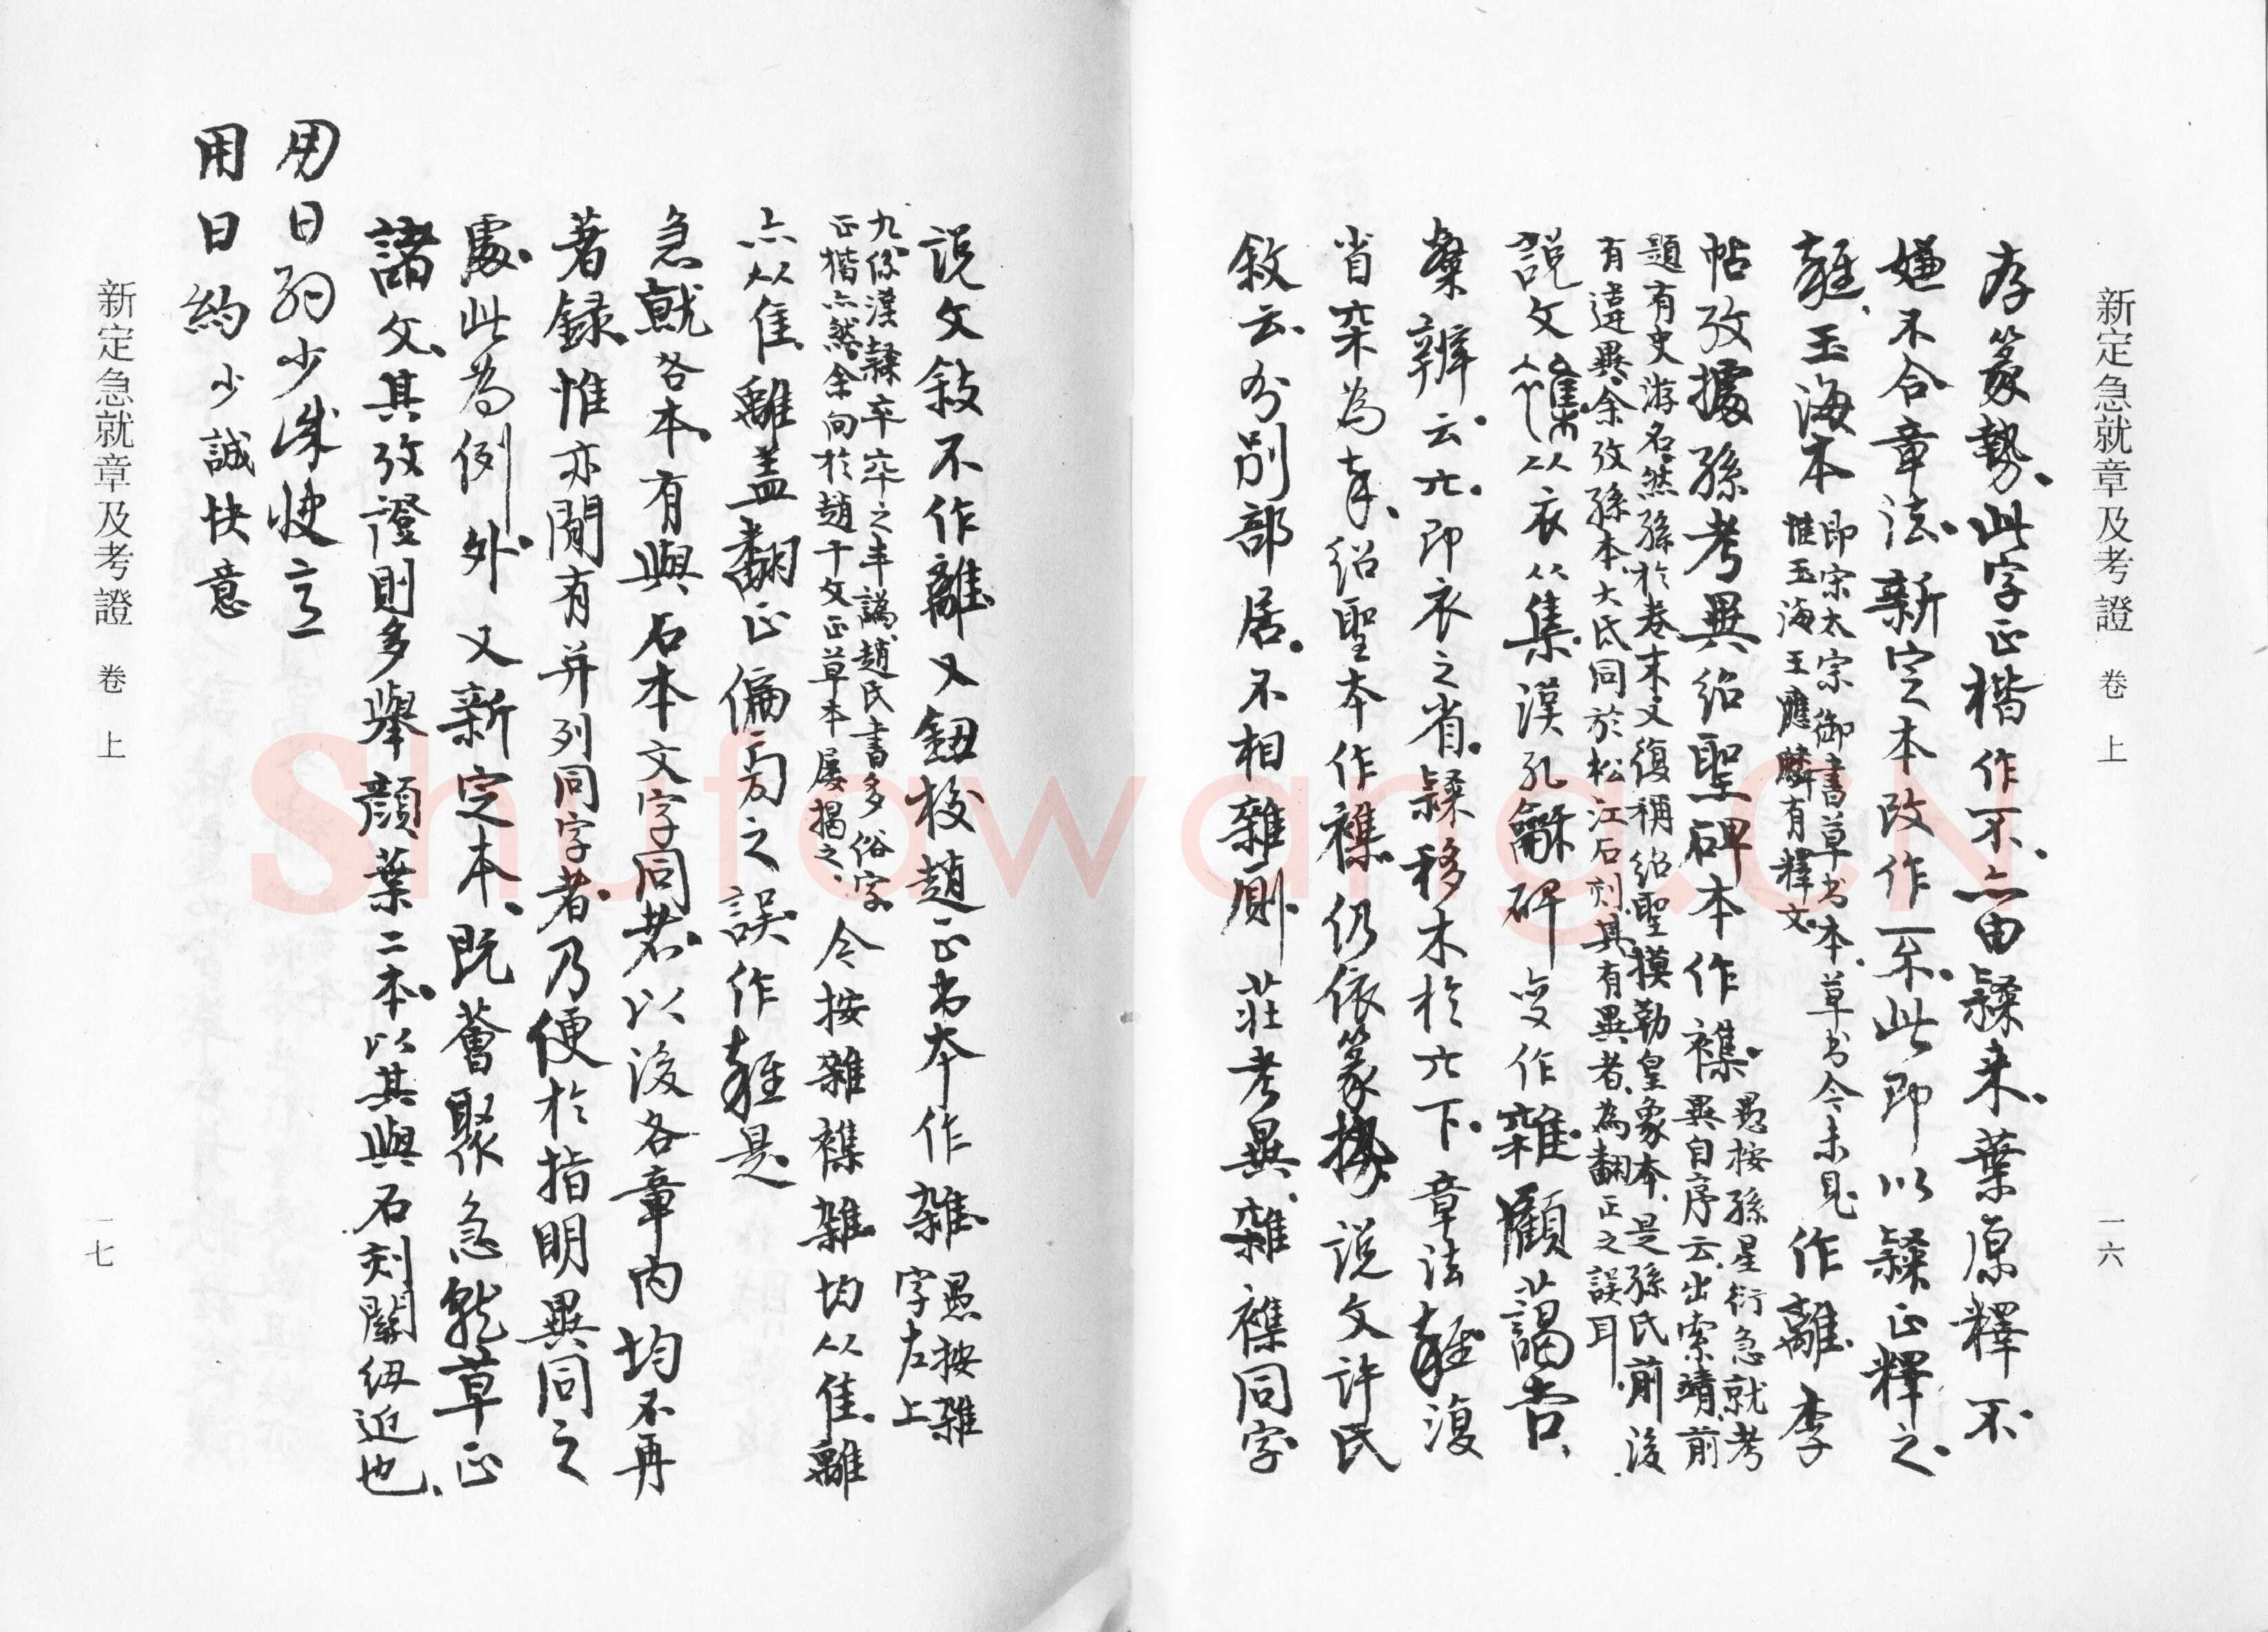 新定急就章及考證 卷上 一六
存篆勢、此字正楷作不、亦由隸来、葉原釋不
嫌不合章法、新定本改作不、此即以隸正釋之
玉海本
即宗太宗御書草书本、草书今未見
惟玉海王應麟有釋文
作離、李
帖攷據孫考異紹聖碑本作襍、
愚按孫星衍急就考
異自序云、出索靖、前
題有史游名、然孫於卷末又復稱紹聖摸勒皇象本、是孫氏前後
有違異、余攷孫本大氐同於松江石刻、其有異者、為翻正之誤耳、
說文从衣从集、漢孔龢碑变作雜、顧藹吉、
辨云、即衣之省、隸移木於下、章法復
省為、紹聖本作襍、仍依篆勢、说文許氏
敘云、分别部居、不相雜厠、莊考異、雜襍同字
说文敍不作離、又鈕校趙正书本作雜、
愚按雜
字左上
九係漢隸卒之譌、趙氏書多俗字
正楷亦然、余向於趙千文正草本屡揭之、
今按雜襍雜均从隹、離
亦从隹、離盖翻正偏旁之誤、作是
急就各本、有與石本文字同者、以後各章内均不再
著録、惟亦閒有并列同字者、乃便於指明異同之
處、此為例外、又新定本、既薈聚急就草正
諸文、其攷證則多舉顔葉二本、以其與石刻關纽近也、
用日約少誠快意
用日約少誠快意
新定急就章及考證 卷上 一七
Shufawang.CN